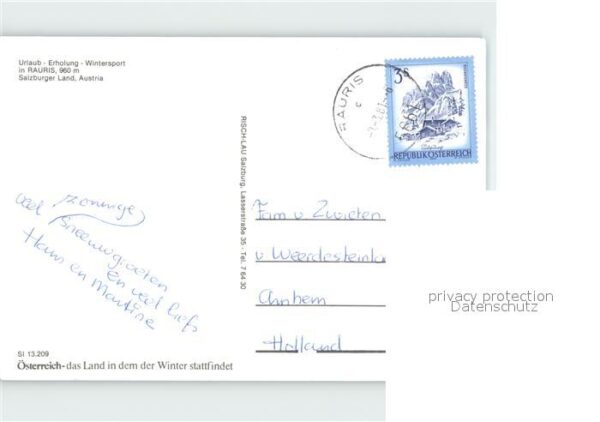 Urlaub - Erholung - Wintersport
in RAURIS, 960 m
Salzburger Land, Austria
RAURIS
c
3S
REPUBLIK ÖSTERREICH
RISCH-LAU Salzburg, Lasserstraße 35 - Tel. 7 64 30
veel zonnige
sneeuwgroeten
en veel liefs
Hans en Martine
Fam v Zwieten
v Weerdesteinla
Arnhem
Holland
SI 13.209
Österreich - das Land in dem der Winter stattfindet
privacy protection
Datenschutz